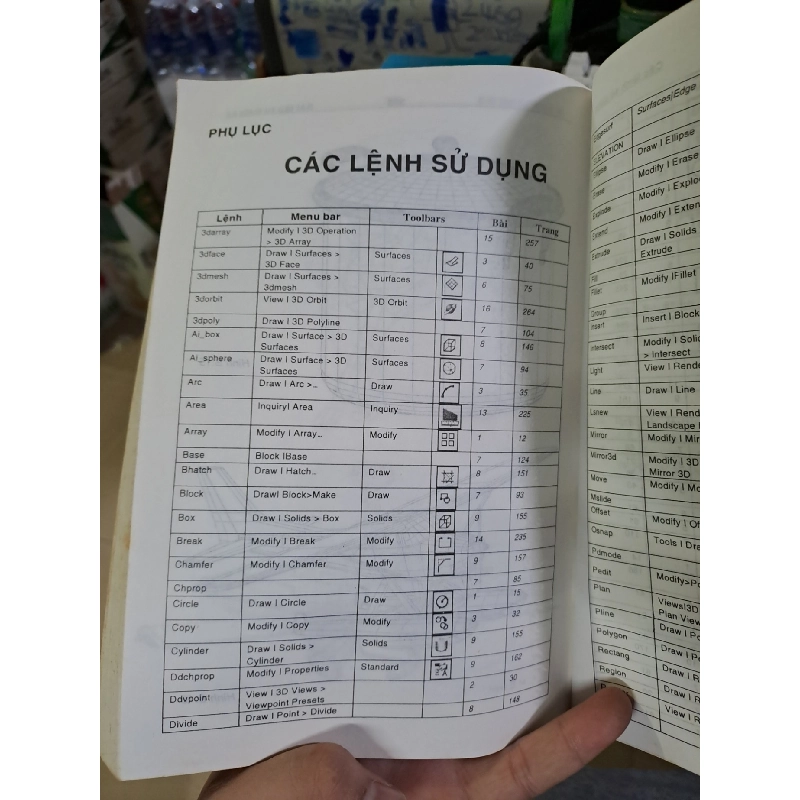 PHỤ LỤC
CÁC LỆNH SỬ DỤNG
Lệnh Menu bar Toolbars Bài Trang
3darray Modify I 3D Operation > 3D Array 15 257
3dface Draw I Surfaces > 3D Face Surfaces 3 40
3dmesh Draw I Surfaces > 3dmesh Surfaces 6 75
3dorbit View I 3D Orbit 3D Orbit 16 264
3dpoly Draw I 3D Polyline 7 104
Ai_box Draw I Surface > 3D Surfaces Surfaces 8 146
Ai_sphere Draw I Surface > 3D Surfaces Surfaces 7 94
Arc Draw I Arc >.. Draw 3 35
Area InquiryI Area Inquiry 13 225
Array Modify I Array.. Modify 1 12
Base Block IBase 7 124
Bhatch Draw I Hatch.. Draw 8 151
Block DrawI Block>Make Draw 7 92
Box Draw I Solids > Box Solids 9 155
Break Modify I Break Modify 14 235
Chamfer Modify I Chamfer Modify 9 157
Chprop 7 85
Circle Draw I Circle Draw 1 15
Copy Modify I Copy Modify 3 32
Cylinder Draw I Solids > Cylinder Solids 9 155
Ddchprop Modify I Properties Standard 9 162
Ddvpoint View I 3D Views > Viewpoint Presets 2 30
Divide Draw I Point > Divide 8 148
Surfaces|Edge
Draw I Ellipse
Erase Modify I Erase
Explode Modify I Explo
Extend Modify I Exten
Extrude Draw I Solids Extrude
Fill
Fillet Modify IFillet
Group
Insert Insert I Block
Intersect Modify I Solid > Intersect
Light View I Rende
Line Draw I Line
Lsnew View I Rend Landscape
Mirror Modify I Mir
Mirror3d Modify I 3D Mirror 3D
Move Modify I Mo
Mslide
Offset Modify I Of
Osnap Tools I Dra
Pdmode
Pedit Modify>Po
Plan Views|3D Plan View
Pline Draw I Po
Polygon Draw I P
Rectang Draw I R
Region Draw I R
View I R